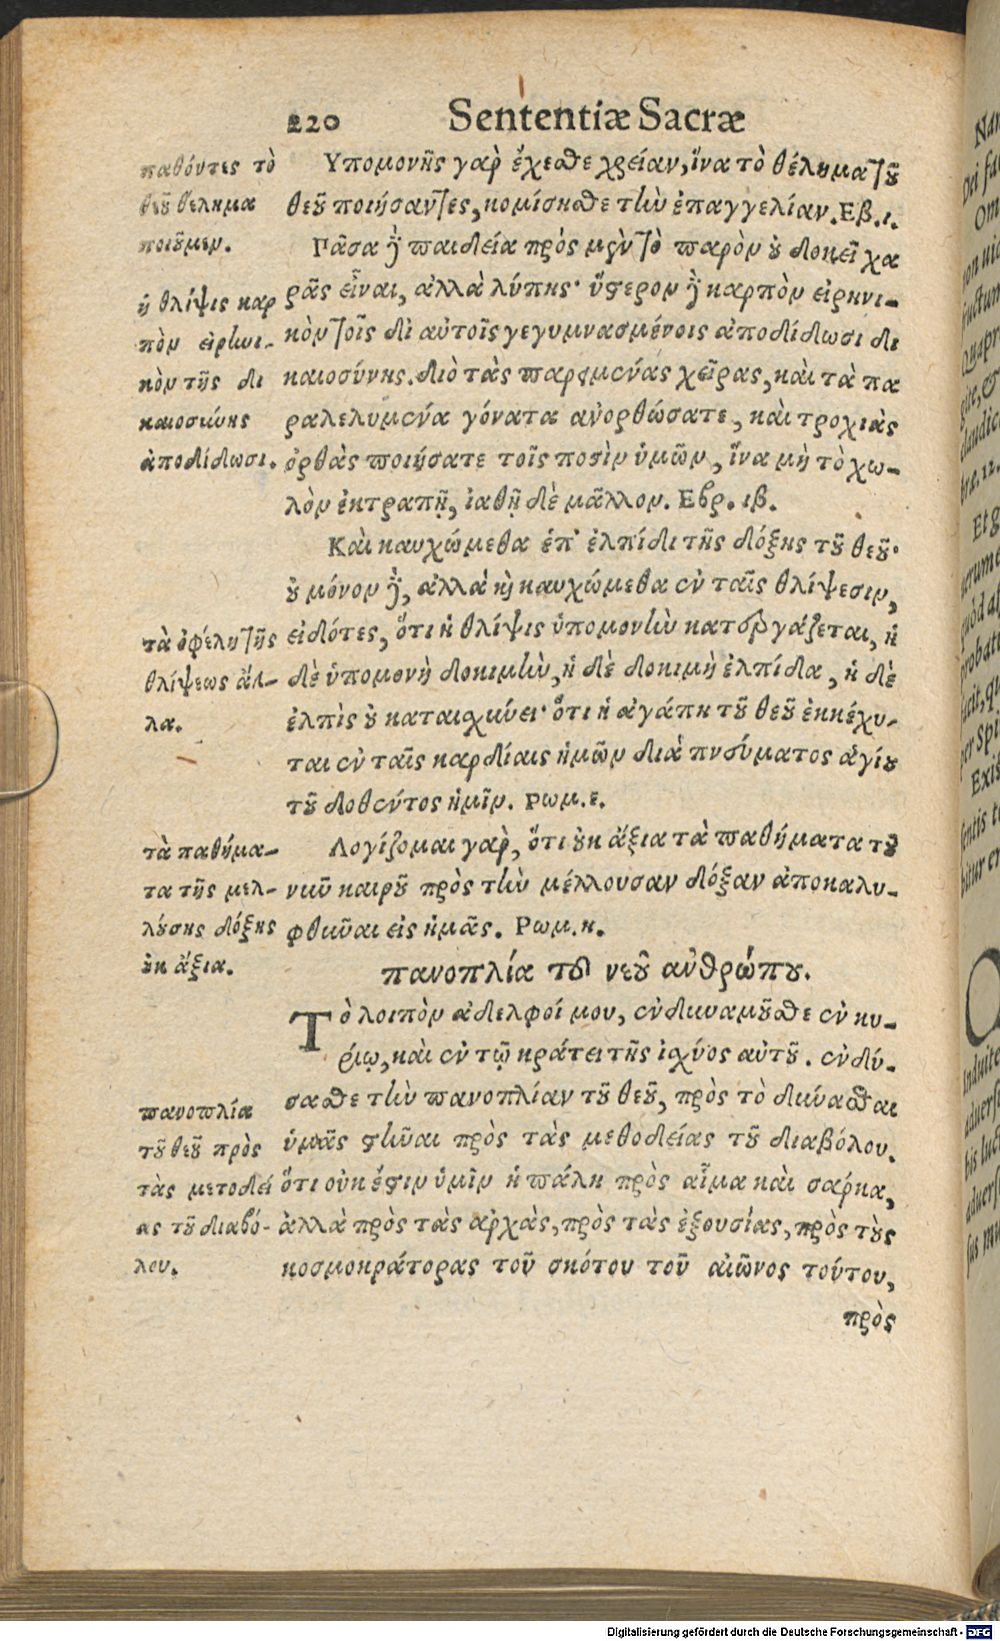 220 Sententiæ Sacræ
παθόντες τὸ
θεοῦ θέλημα
ποιοῦμεν.
ἡ θλίψις καρ
πὸν εἰρηνι-
κὸν τῆς δι
καιοσύνης
ἀποδίδωσι.
τὰ ὀφέλη τῆς
θλίψεως ἄλ-
λα.
τὰ παθήμα-
τα τῆς μελ-
λούσης δόξης
οὐκ ἄξια.
πανοπλία
τοῦ θεοῦ πρὸς
τὰς μετοδεί
ας τοῦ διαβό-
λου.
Υπομονῆς γαρ ἔχεσθε χρείαν, ἵνα τὸ θέλημα τοῦ
θεοῦ ποιήσαντες, κομίσησθε τὴν ἐπαγγελίαν. Εβ. ι.
Πᾶσα δὲ παιδεία πρὸς μὲν τὸ παρὸν οὐ δοκεῖ χα
ρᾶς εἶναι, ἀλλὰ λύπης· ὕστερον δὲ καρπὸν εἰρηνι-
κὸν τοῖς δι αὐτοῖς γεγυμνασμένοις ἀποδίδωσι δι
καιοσύνης. διὸ τὰς παρειμένας χεῖρας, καὶ τὰ πα
ραλελυμένα γόνατα ἀνορθώσατε, καὶ τροχιὰς
ὀρθὰς ποιήσατε τοῖς ποσὶν ὑμῶν, ἵνα μὴ τὸ χω-
λὸν ἐκτραπῇ, ἰαθῇ δὲ μᾶλλον. Εβρ. ιβ.
Καὶ καυχώμεθα ἐπ' ἐλπίδι τῆς δόξης τοῦ θεοῦ·
οὐ μόνον δὲ, ἀλλὰ καὶ καυχώμεθα ἐν ταῖς θλίψεσιν,
εἰδότες, ὅτι ἡ θλίψις ὑπομονὴν κατεργάζεται, ἡ
δὲ ὑπομονὴ δοκιμὴν, ἡ δὲ δοκιμὴ ἐλπίδα, ἡ δὲ
ἐλπὶς οὐ καταισχύνει· ὅτι ἡ ἀγάπη τοῦ θεοῦ ἐκκέχυ-
ται ἐν ταῖς καρδίαις ἡμῶν διὰ πνεύματος ἁγίου
τοῦ δοθέντος ἡμῖν. Ρωμ. ε.
Λογίζομαι γαρ, ὅτι οὐκ ἄξια τὰ παθήματα τοῦ
νῦν καιροῦ πρὸς τὴν μέλλουσαν δόξαν ἀποκαλυ-
φθῆναι εἰς ἡμᾶς. Ρωμ. η.
πανοπλία τοῦ νεοῦ ἀνθρώπου.
Τὸ λοιπὸν ἀδελφοί μου, ἐνδυναμοῦσθε ἐν κυ-
ρίῳ, καὶ ἐν τῷ κράτει τῆς ἰσχύος αὐτοῦ. ἐνδύ-
σασθε τὴν πανοπλίαν τοῦ θεοῦ, πρὸς τὸ δύνασθαι
ὑμᾶς στῆναι πρὸς τὰς μεθοδείας τοῦ διαβόλου.
ὅτι οὐκ ἔστιν ὑμῖν ἡ πάλη πρὸς αἷμα καὶ σάρκα,
ἀλλὰ πρὸς τὰς ἀρχὰς, πρὸς τὰς ἐξουσίας, πρὸς τοὺς
κοσμοκράτορας τοῦ σκότου τοῦ αἰῶνος τούτου,
πρὸς
Digitalisierung gefördert durch die Deutsche Forschungsgemeinschaft - DFG